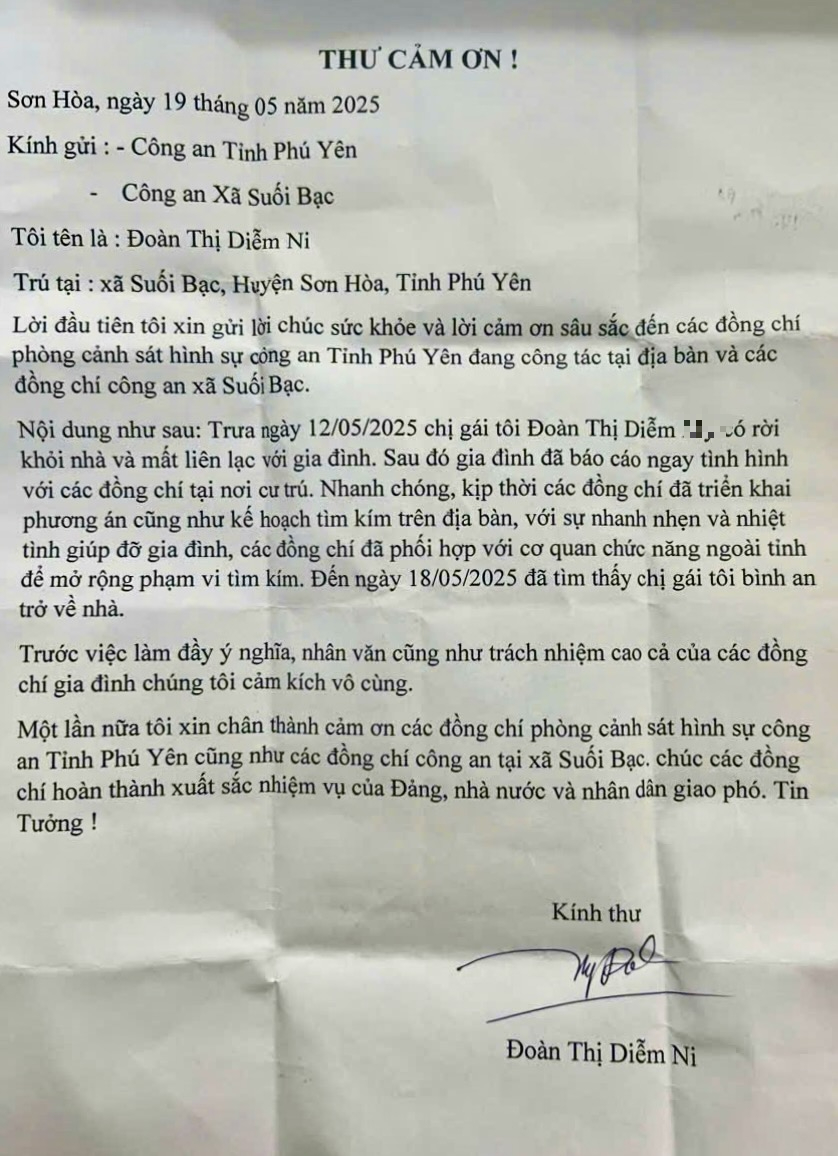 THƯ CẢM ƠN !
Sơn Hòa, ngày 19 tháng 05 năm 2025
Kính gửi : - Công an Tỉnh Phú Yên
- Công an Xã Suối Bạc
Tôi tên là : Đoàn Thị Diễm Ni
Trú tại : xã Suối Bạc, Huyện Sơn Hòa, Tỉnh Phú Yên
Lời đầu tiên tôi xin gửi lời chúc sức khỏe và lời cảm ơn sâu sắc đến các đồng chí
phòng cảnh sát hình sự công an Tỉnh Phú Yên đang công tác tại địa bàn và các
đồng chí công an xã Suối Bạc.
Nội dung như sau: Trưa ngày 12/05/2025 chị gái tôi Đoàn Thị Diễm có rời
khỏi nhà và mất liên lạc với gia đình. Sau đó gia đình đã báo cáo ngay tình hình
với các đồng chí tại nơi cư trú. Nhanh chóng, kịp thời các đồng chí đã triển khai
phương án cũng như kế hoạch tìm kím trên địa bàn, với sự nhanh nhẹn và nhiệt
tình giúp đỡ gia đình, các đồng chí đã phối hợp với cơ quan chức năng ngoài tỉnh
để mở rộng phạm vi tìm kím. Đến ngày 18/05/2025 đã tìm thấy chị gái tôi bình an
trở về nhà.
Trước việc làm đầy ý nghĩa, nhân văn cũng như trách nhiệm cao cả của các đồng
chí gia đình chúng tôi cảm kích vô cùng.
Một lần nữa tôi xin chân thành cảm ơn các đồng chí phòng cảnh sát hình sự công
an Tỉnh Phú Yên cũng như các đồng chí công an tại xã Suối Bạc. chúc các đồng
chí hoàn thành xuất sắc nhiệm vụ của Đảng, nhà nước và nhân dân giao phó. Tin
Tưởng !
Kính thư
Đoàn Thị Diễm Ni